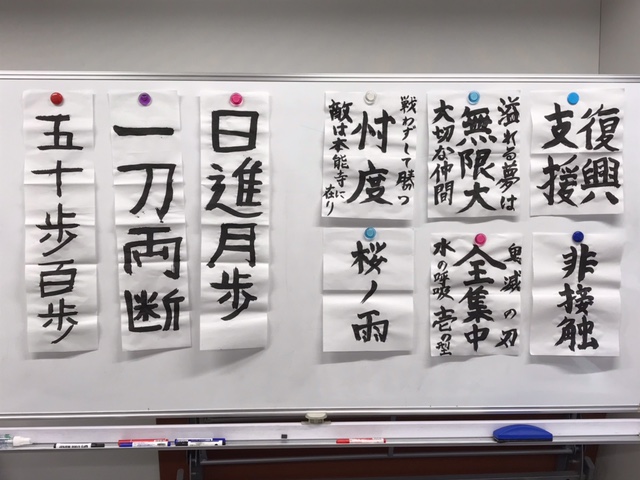 復興
支援
溢れる夢は
無限大
大切な仲間
戦わずして勝つ
忖度
敵は本能寺に在り
非接触
鬼滅の刃
全集中
水の呼吸 壱の型
桜ノ雨
日進月歩
一刀両断
五十歩百歩